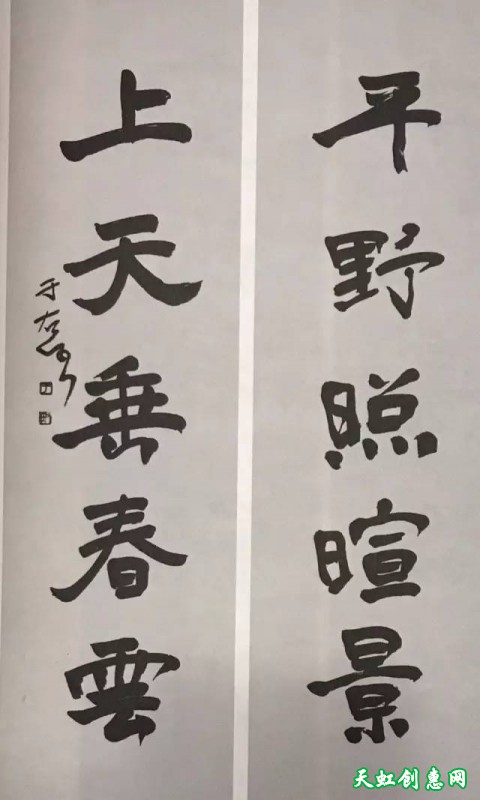 平野照暄景
上天垂春雲
于右任
天虹创惠网